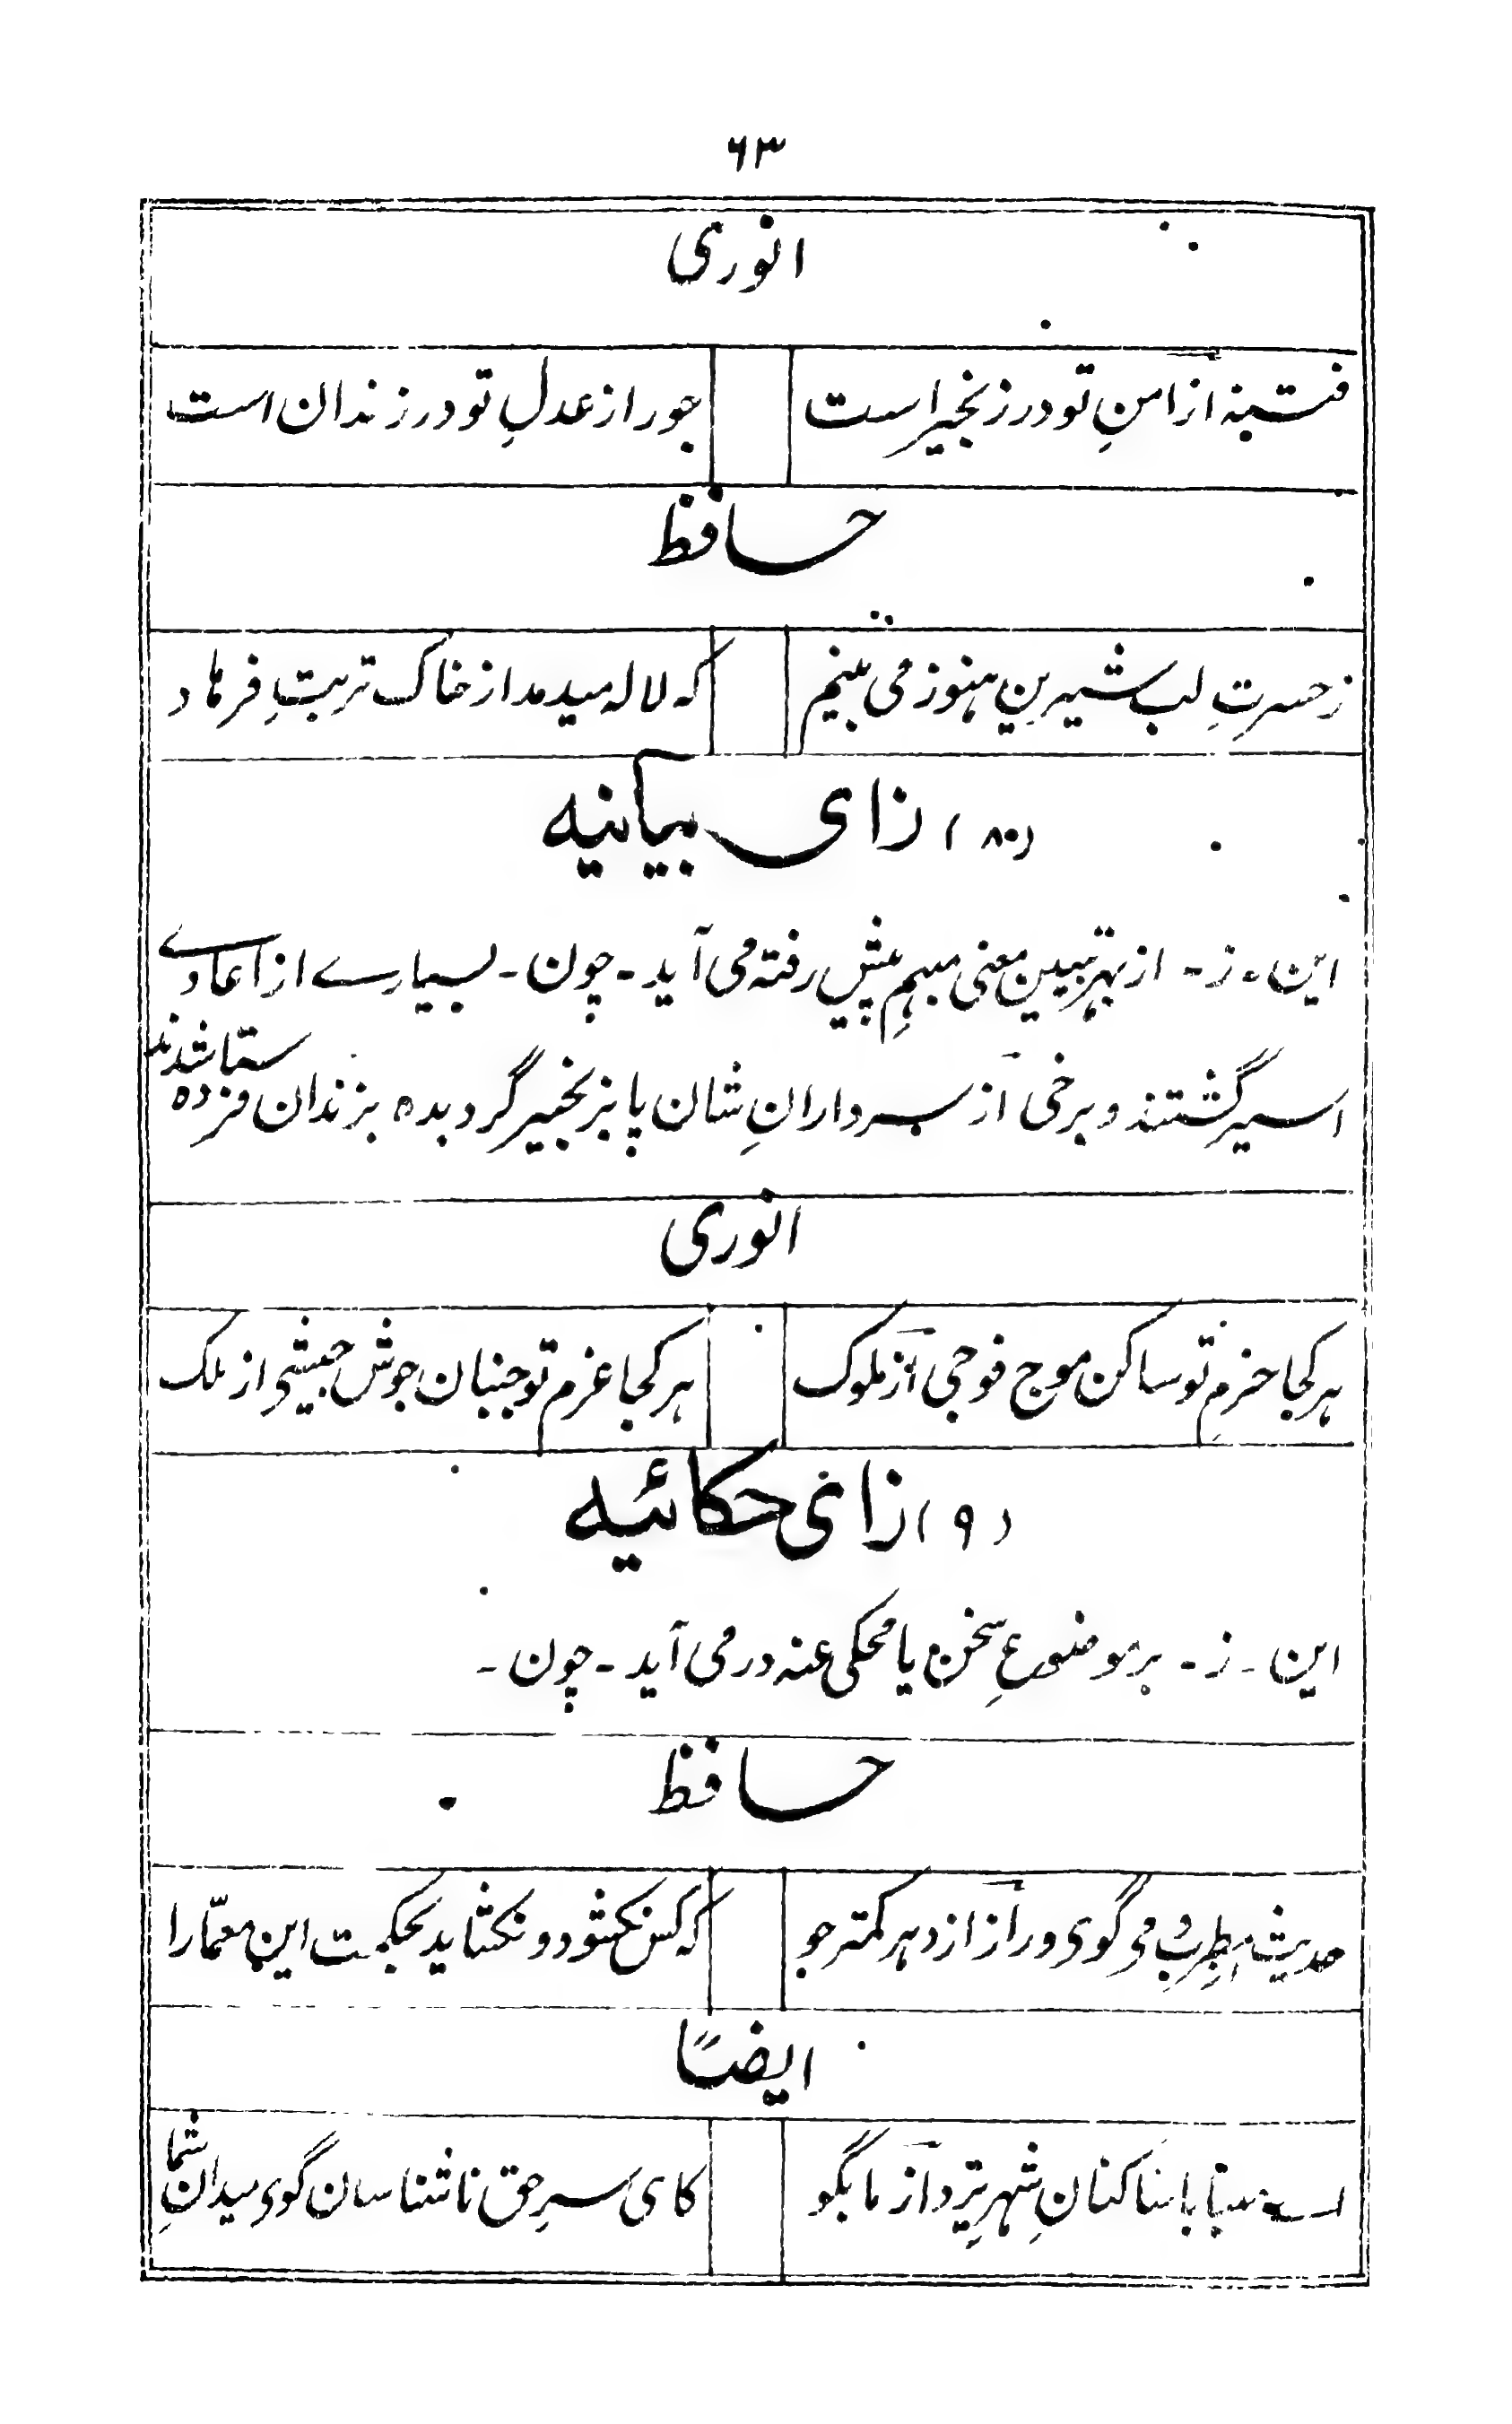 ۶۳
انوری
فتنہ از امنِ تو در زنجیر است جور از عدلِ تو در زندان است
حافظ
ز حسرتِ لب شیرین ہنوز می بینم کہ لالہ میدمد از خاک تربتِ فرہاد
(۸) زای بیانیہ
این - ز - از بہر تبیین معنی مبہمِ پیش رفتہ می آید - چون - بسیارے از اعادے
اسیر گشتند و برخی از سردارانِ شان پا بزنجیر گردیدہ بزندان فرستادہ شدند
انوری
ہر کجا حزمِ تو ساکن موج فوجی از ملوک ہر کجا عزم تو جنبان جوش جیشی از ملک
(۹) زای حکائیہ
این - ز - بر موضوعِ سخن یا محکی عنہ در می آید - چون -
حافظ
حدیث مطرب و می گوی و راز از دہر کمتر جو کہ کس نکشود و نکشاید بحکمت این معمّا را
ایضًا
اے صبا با ساکنانِ شہرِ یزد از ما بگو کای سرِ حق ناشناسان گوی میدانِ شما